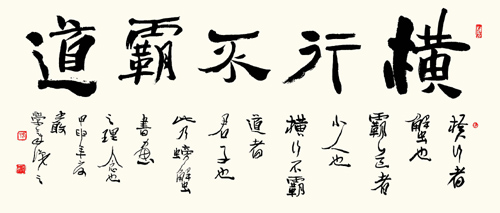 横行不霸道
横行者
蟹也
霸道者
小人也
横行不霸
道者
君子也
此乃螃蟹
書画
之理念也
甲申年